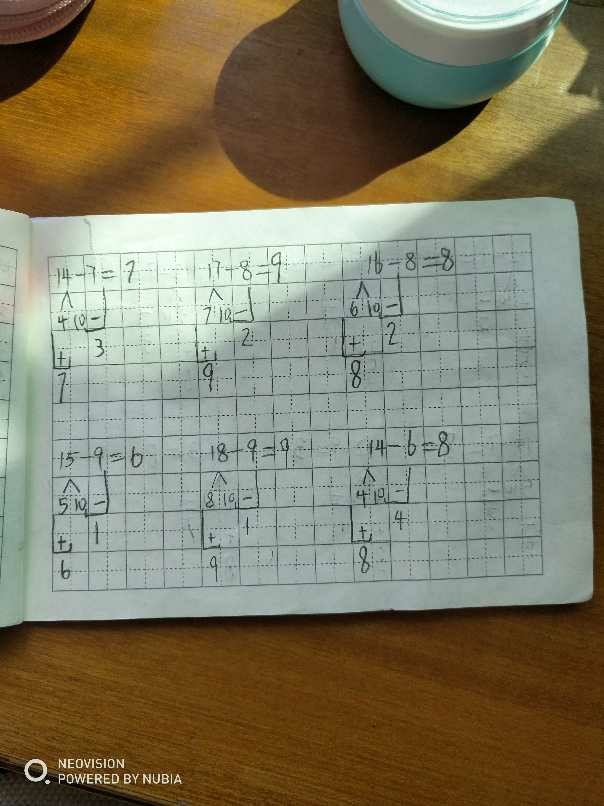 14-7=7 17-8=9 16-8=8
4 10 - 7 10 - 6 10 -
+ 3 + 2 + 2
7 9 8
15-9=6 18-9=9 14-6=8
5 10 - 8 10 - 4 10 -
+ 1 + 1 + 4
6 9 8
NEOVISION
POWERED BY NUBIA